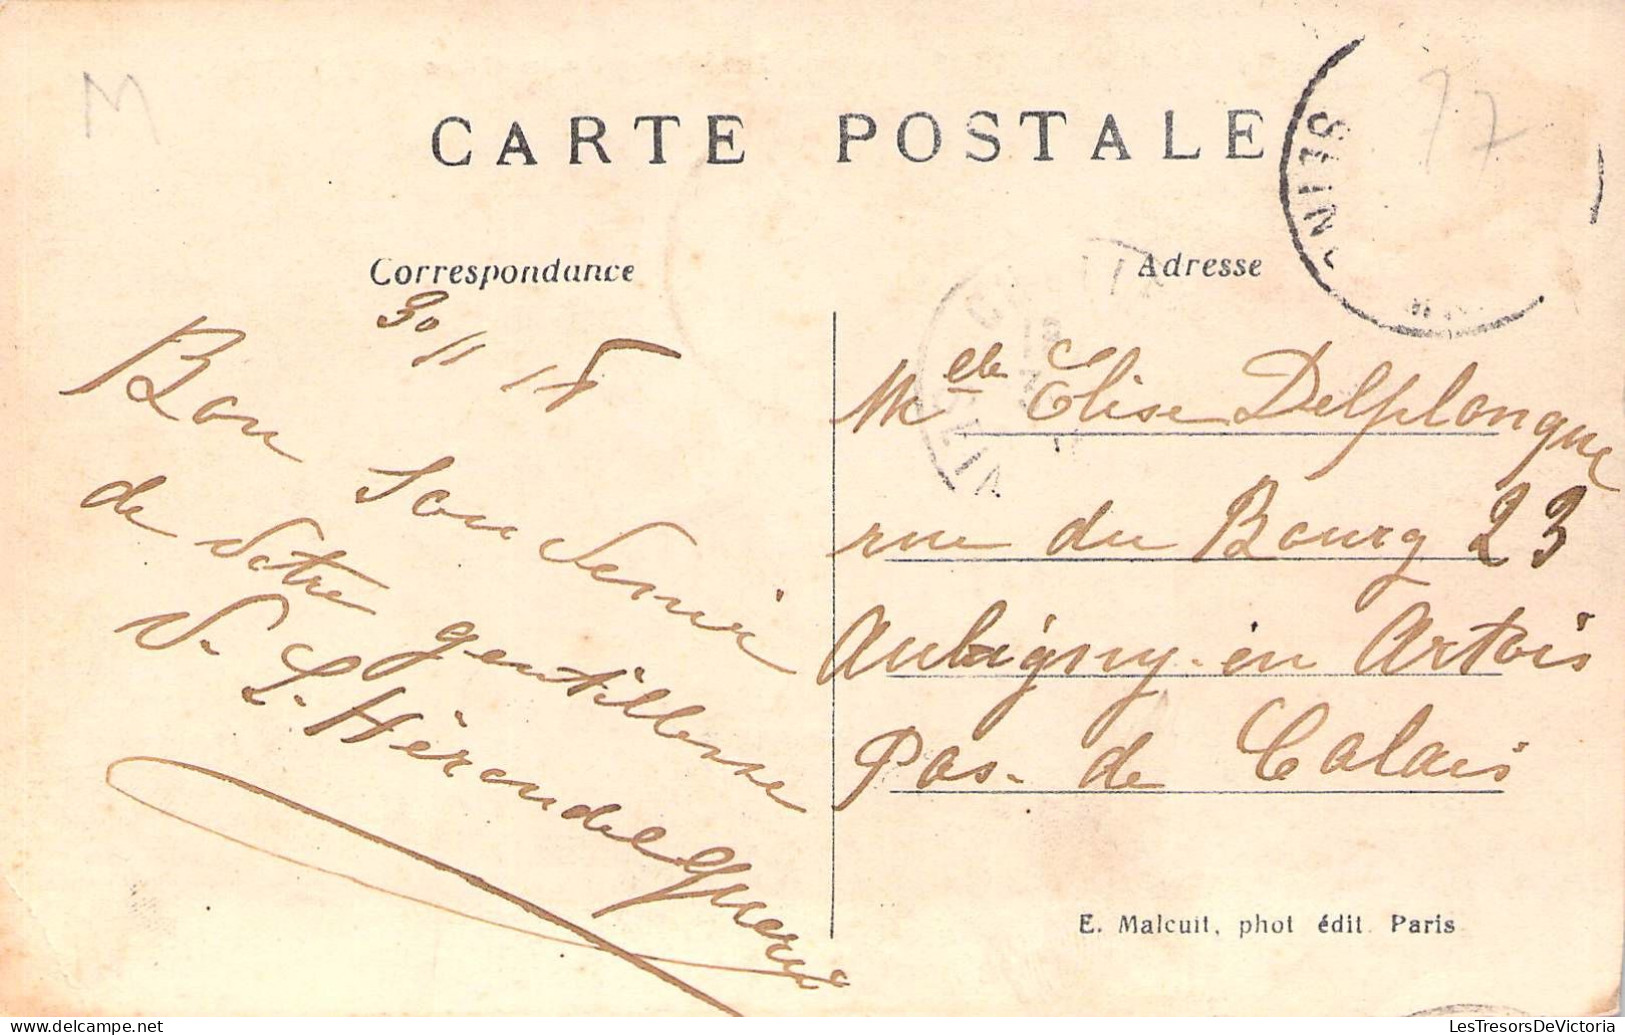 M
77
CARTE POSTALE
Correspondance
Adresse
30 11 18
Bon Souvenir
de Votre gentillesse
V. L. Héron de
Guerre
Melle Elise Delplanque
rue du Bourg 23
Aubigny-en Artois
Pas-de Calais
E. Malcuit, phot édit. Paris
© LesTresorsDeVictoria